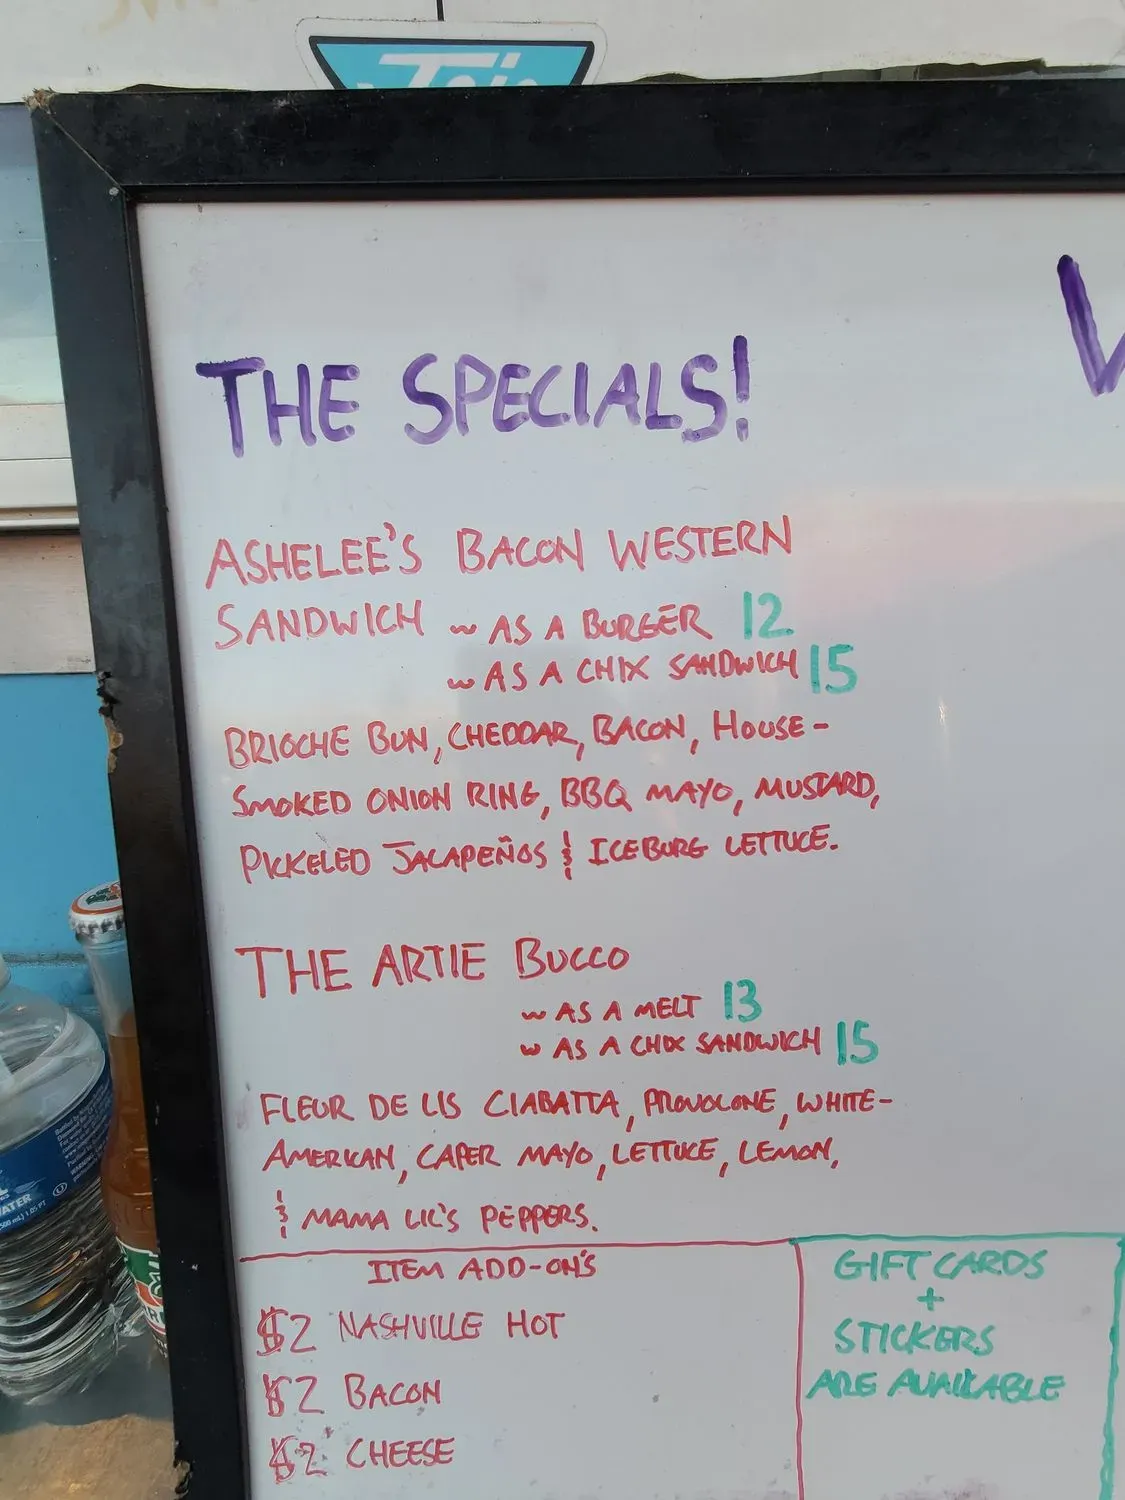 THE SPECIALS!
ASHELEE'S BACON WESTERN
SANDWICH ~ AS A BURGER 12
~ AS A CHIX SANDWICH 15
BRIOCHE BUN, CHEDDAR, BACON, HOUSE-
SMOKED ONION RING, BBQ MAYO, MUSTARD,
PICKELED JALAPEÑOS & ICEBURG LETTUCE.
THE ARTIE BUCCO
~ AS A MELT 13
~ AS A CHIX SANDWICH 15
FLEUR DE LIS CIABATTA, PROVOLONE, WHITE-
AMERICAN, CAPER MAYO, LETTUCE, LEMON,
& MAMA LIL'S PEPPERS.
ITEM ADD-ON'S
$2 NASHVILLE HOT
$2 BACON
$2 CHEESE
GIFT CARDS
+
STICKERS
ARE AVAILABLE